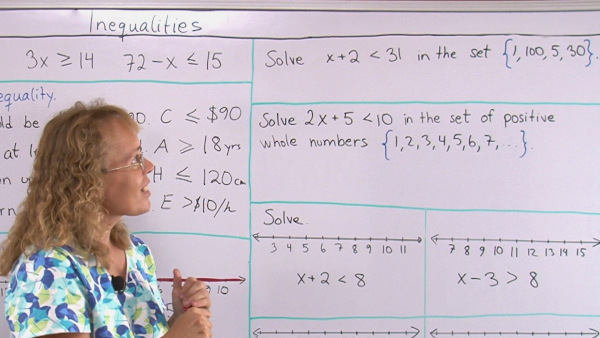 Inequalities
3x ≥ 14   72 - x ≤ 15
C ≤ $90
A ≥ 18 yrs
H ≤ 120 cm
E > $10/h
10
Solve x + 2 < 31 in the set {1, 100, 5, 30}.
Solve 2x + 5 < 10 in the set of positive
whole numbers {1, 2, 3, 4, 5, 6, 7, ...}.
Solve.
3 4 5 6 7 8 9 10 11
x + 2 < 8
7 8 9 10 11 12 13 14 15
x - 3 > 8